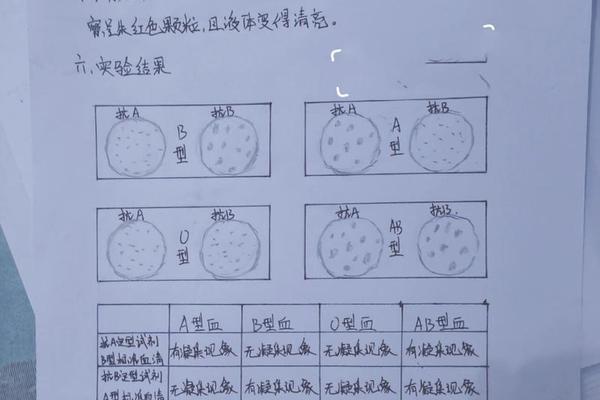 察呈朱红色颗粒,且液体变得清亮。
六、实验结果
抗A 抗B
B型
抗A 抗B
A型
抗A 抗B
O型
抗A 抗B
AB型
A型血 B型血 O型血 AB型血
抗A定型试剂
B型标准血清 有凝集现象 无凝集现象 无凝集现象 有凝集现象
抗B定型试剂
A型标准血清 无凝集现象 有凝集现象 无凝集现象 有凝集现象